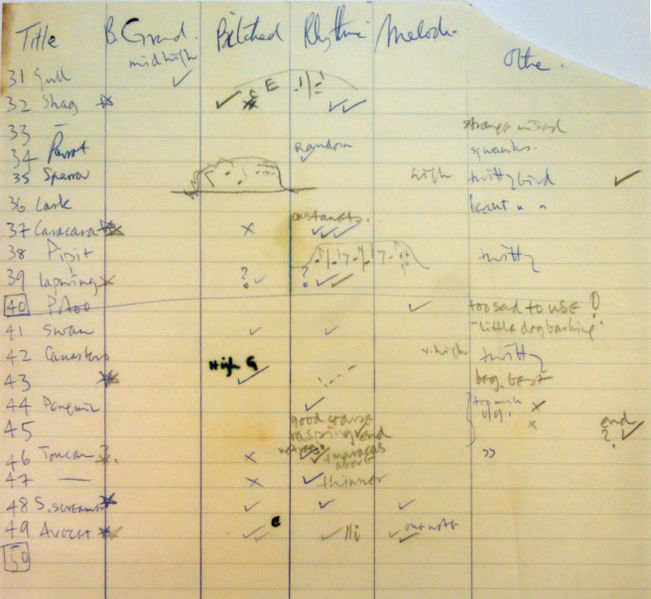 Title B. Grnd. Pitched Rhythmic Melodic Other.
31 Gull midhigh ✓
32 Shag * ✓ E ✓✓
33 — strange mixed
34 Parrot Random ✓ squawks.
35 Sparrow high twittybird ✓
36 Lark " "
37 Caracara * × castanets. ✓✓
38 Pipit twitty
39 Lapwing × ? ✓ ? ✓✓
40 Potoo ✓ too sad to use!
41 Swan ✓ ✓ "little dog barking"
42 v. high twitty
43 * High G ✓ beg. best
44 Penguin ✓ too much b/g! ×
45 good coarse rasping end × end ? ✓
46 Toucan 3. × ✓ + maracas above "
47 — × ✓ thinner
48 S. screamer * ✓ ✓ ✓
49 Avocet * ✓✓ E ✓ ✓✓ one note
50